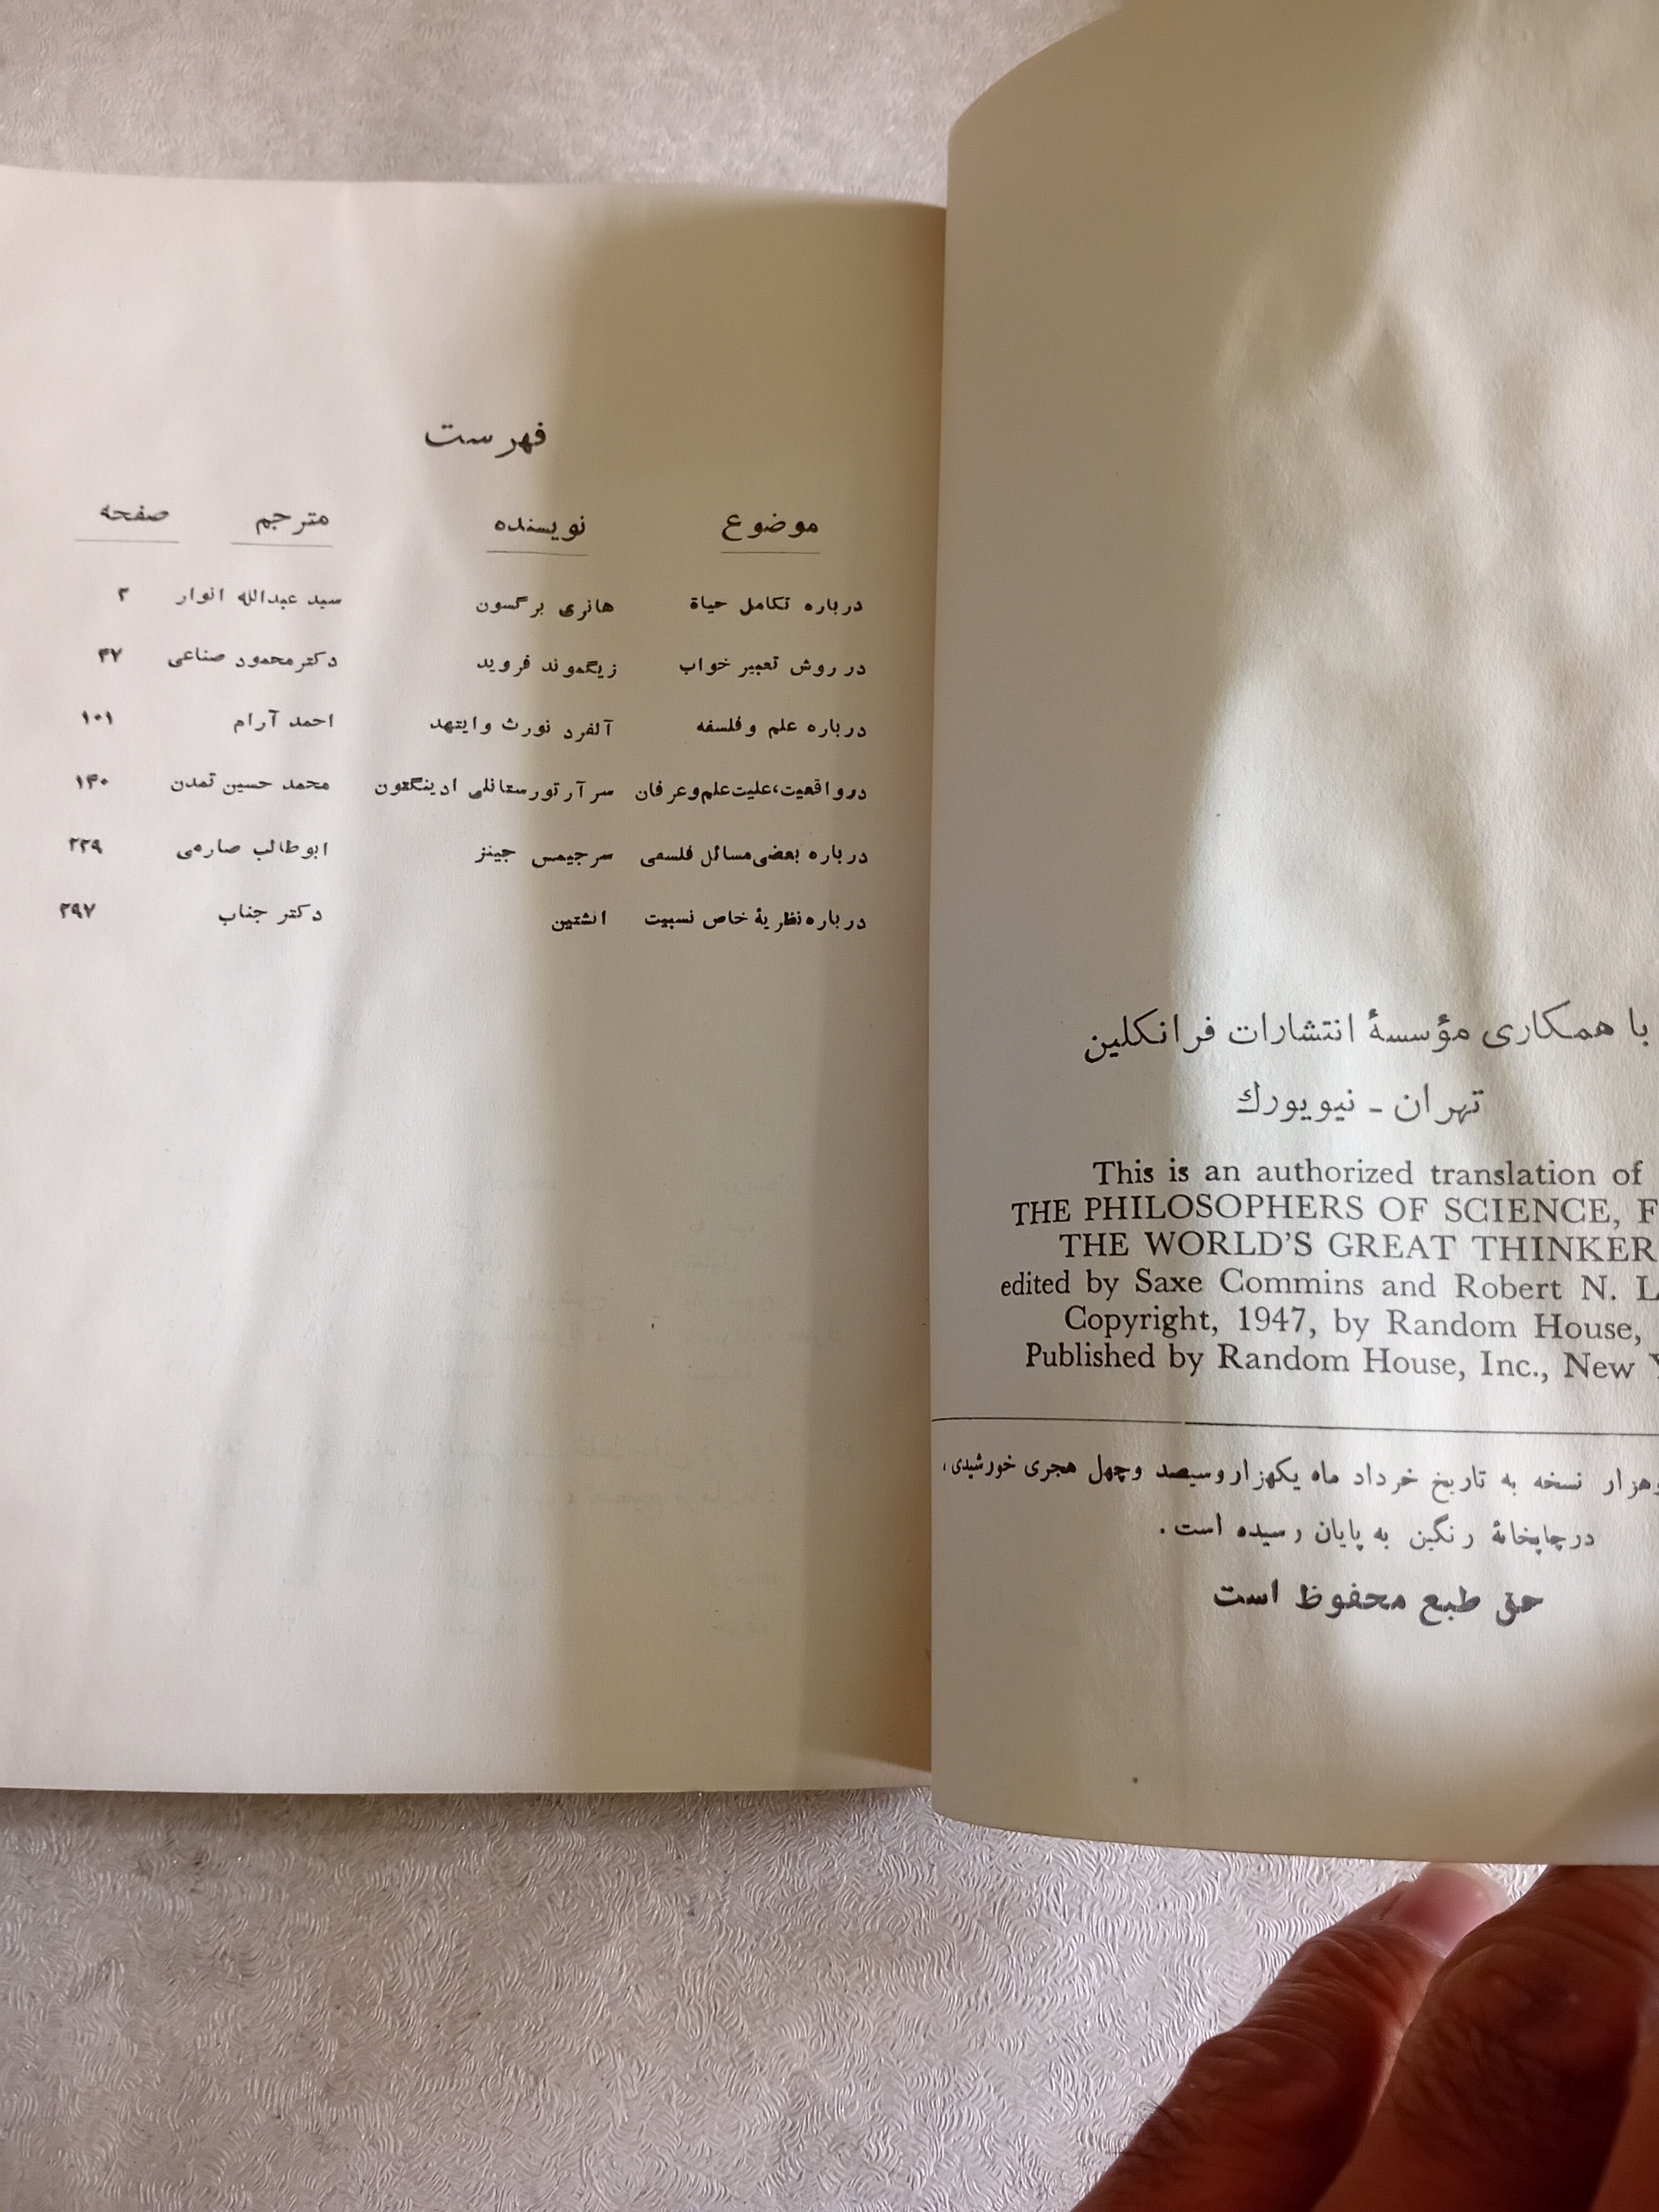 با همکاری مؤسسهٔ انتشارات فرانکلین
تهران - نیویورك
This is an authorized translation of
THE PHILOSOPHERS OF SCIENCE,
THE WORLD'S GREAT THINKER
edited by Saxe Commins and Robert N.
Copyright, 1947, by Random House,
Published by Random House, Inc., New
نسخه به تاریخ خرداد ماه یکهزاروسیصد وچهل هجری خورشیدی،
درچاپخانهٔ رنگین به پایان رسیده است.
حق طبع محفوظ است
فهرست
موضوع نویسنده مترجم صفحه
درباره تکامل حیاة هانری برگسون سید عبدالله انوار ۲
در روش تعبیر خواب زیگموند فروید دکترمحمود صناعی ۴۷
درباره علم وفلسفه آلفرد نورث وایتهد احمد آرام ۱۰۱
درواقعیت،علیت،علم‌وعرفان سرآرتوراستانلی ادینگتون محمد حسین تمدن ۱۴۰
درباره بعضی‌مسائل فلسفی سرجیمس جینز ابوطالب صارمی ۲۲۹
درباره‌نظریهٔ خاص نسبیت انشتین دکتر جناب ۲۹۷